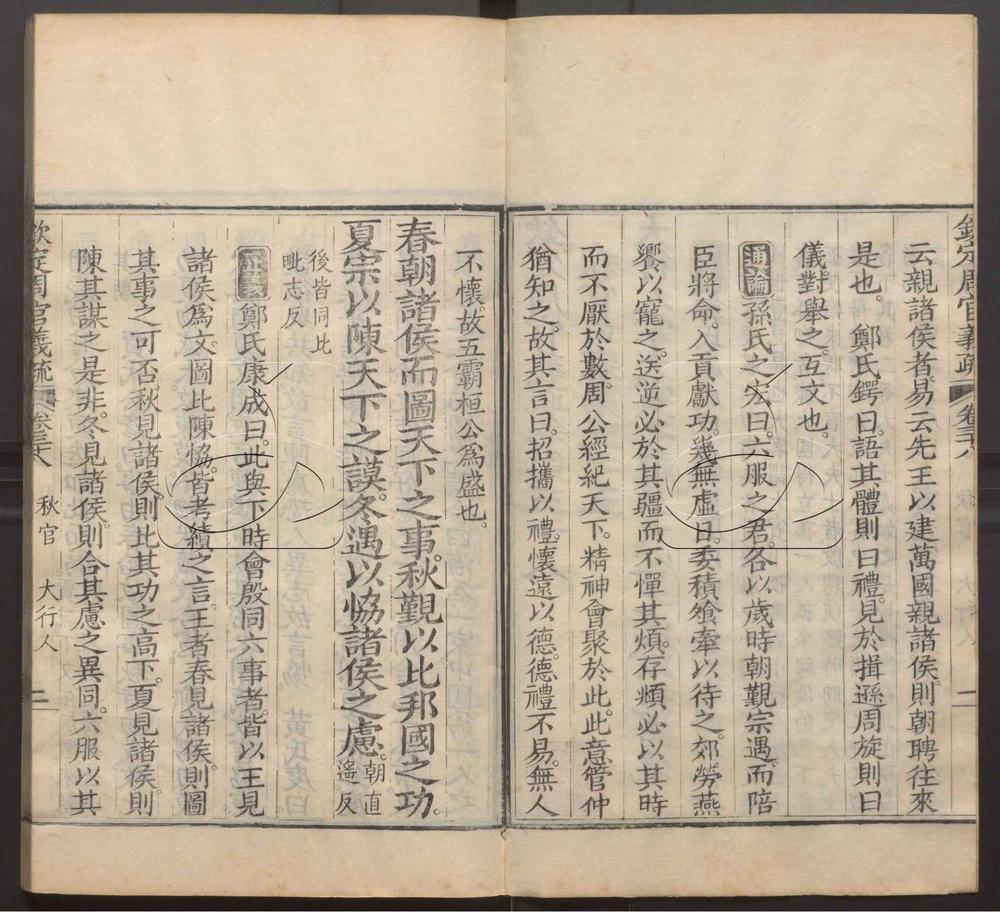 欽定周官義疏 卷三十八
云親諸侯者。易云先王以建萬國親諸侯。則朝聘往來
是也。 鄭氏鍔曰。語其體則曰禮。見於揖遜周旋則曰
儀。對舉之。互文也。
通論 孫氏之宏曰。六服之君。各以歲時朝覲宗遇。而陪
臣將命。入貢獻功。幾無虛日。委積飧牽以待之。郊勞燕
饗以寵之。送逆必於其疆而不憚其煩。存頫必以其時
而不厭於數。周公經紀天下。精神會聚於此。此意管仲
猶知之。故其言曰。招攜以禮。懷遠以德。德禮不易。無人
不懷。故五霸桓公為盛也。
春朝諸侯而圖天下之事。秋覲以比邦國之功。
夏宗以陳天下之謨。冬遇以恊諸侯之慮。朝直遙反
後皆同比
毗志反
正義 鄭氏康成曰。此與下時會殷同六事者。皆以王見
諸侯為文。圖比陳恊。皆考績之言。王者春見諸侯。則圖
其事之可否。秋見諸侯。則比其功之高下。夏見諸侯。則
陳其謀之是非。冬見諸侯。則合其慮之異同。六服以其
欽定周官義疏 卷三十八 秋官 大行人 二